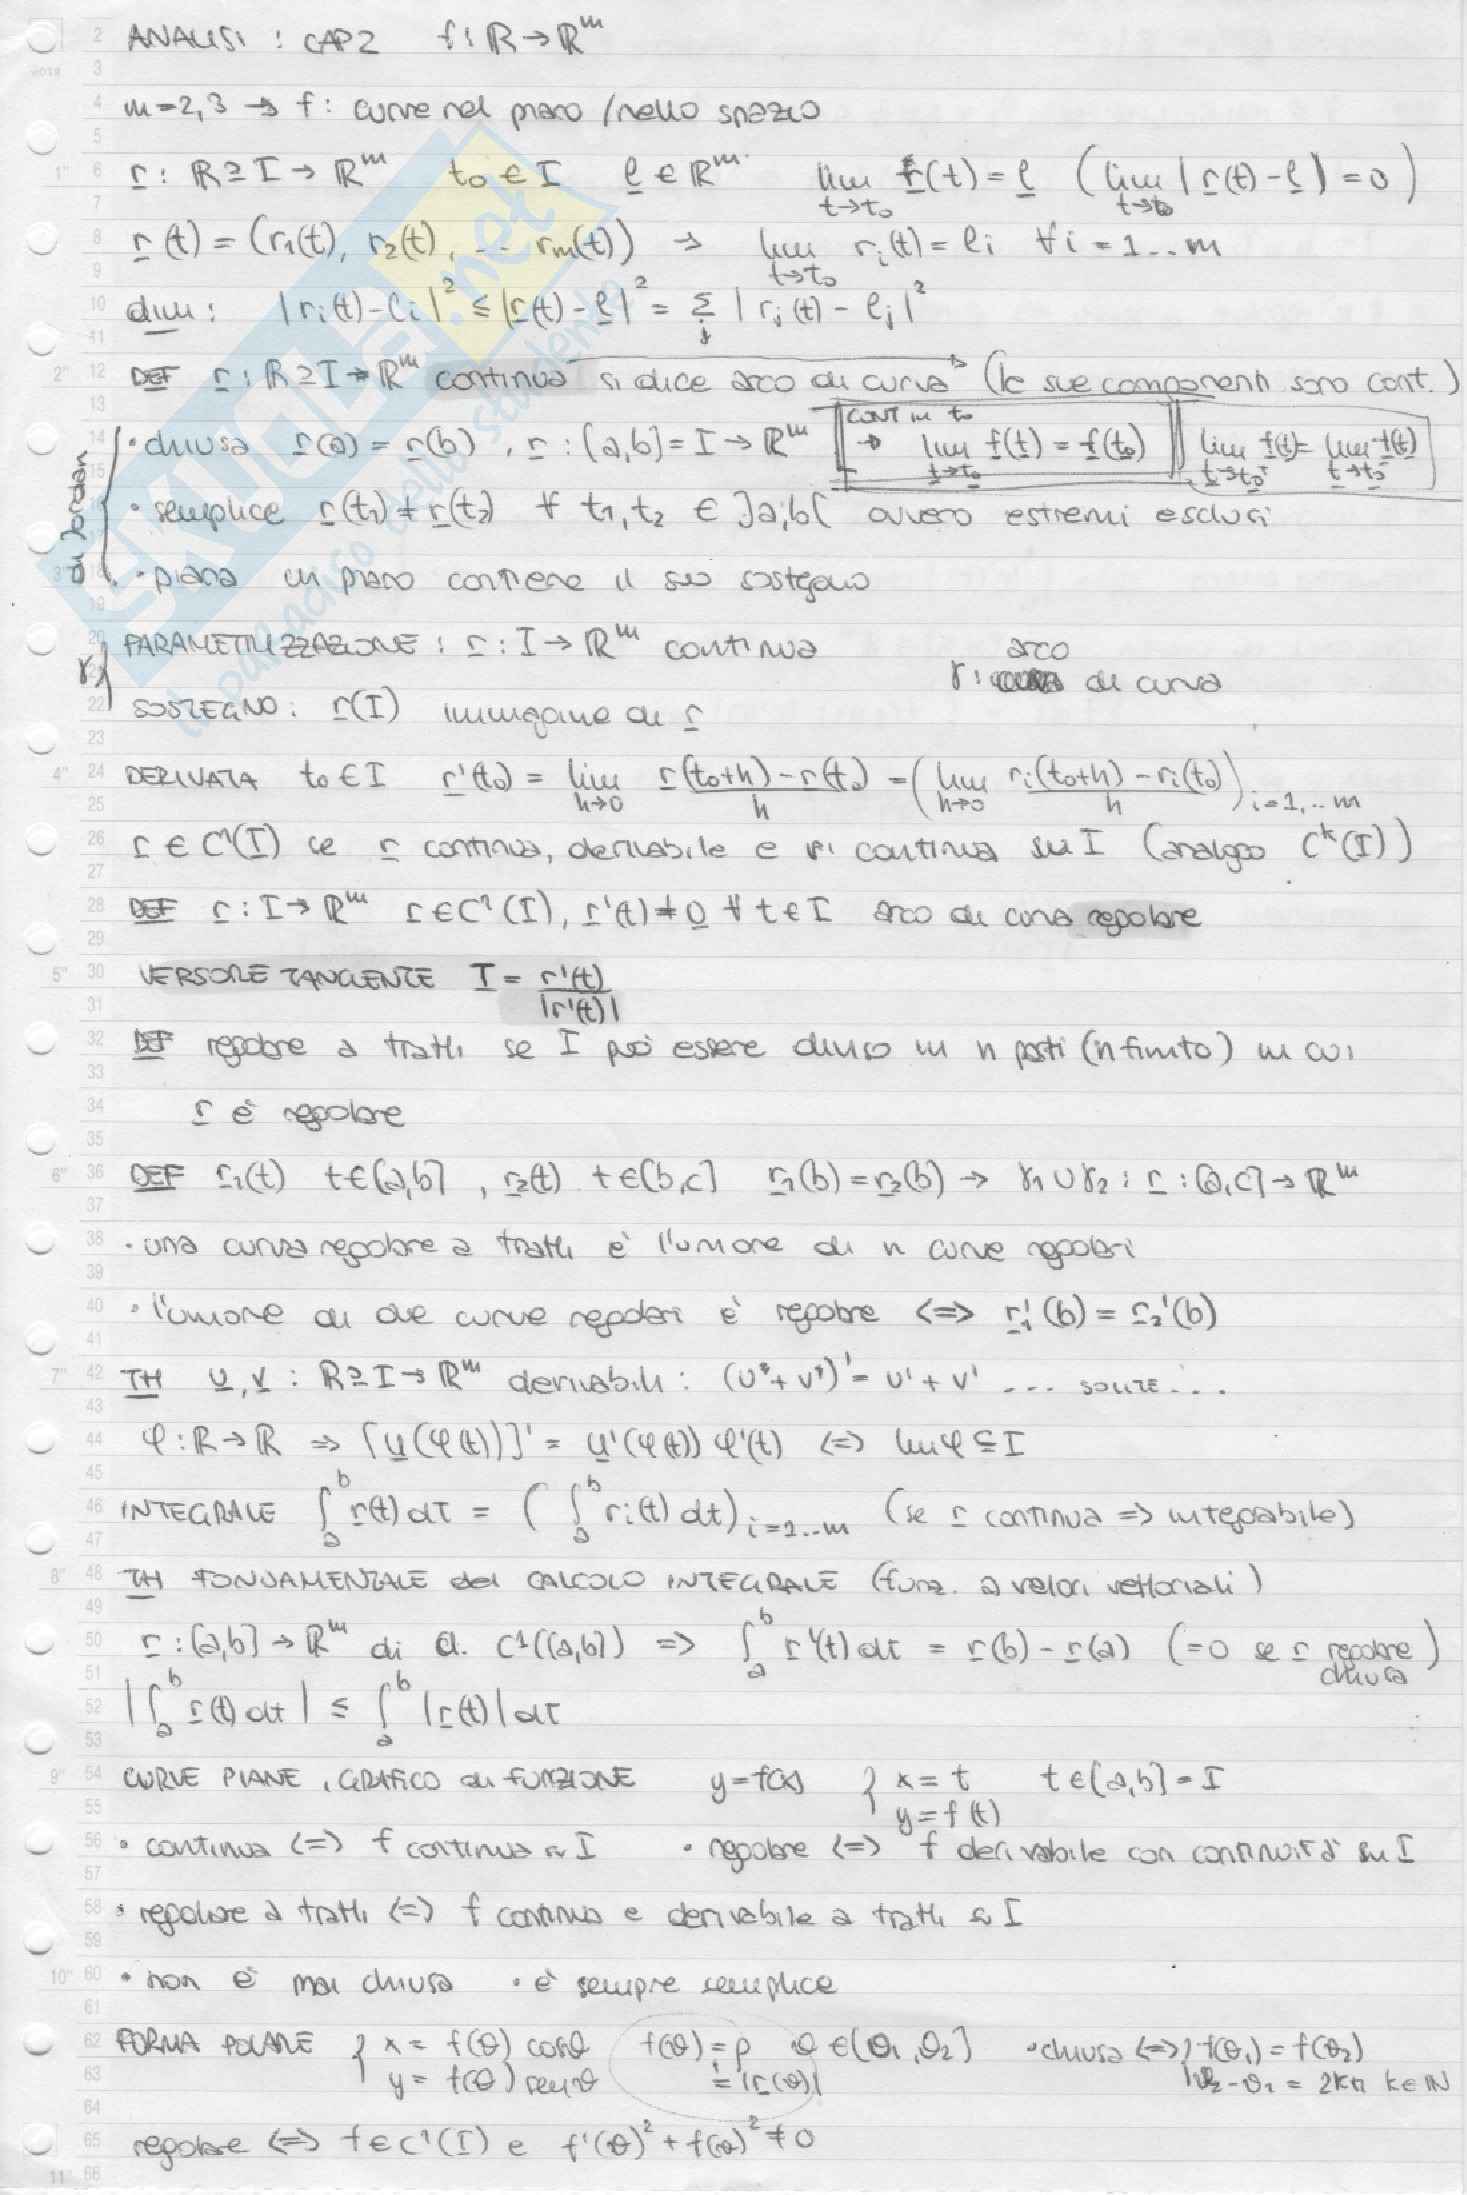 ANALISI : CAP 2 f : ℝ → ℝᵐ
m=2,3 → f : curve nel piano / nello spazio
r : ℝ ⊇ I → ℝᵐ t₀ ∈ I ℓ ∈ ℝᵐ lim t→t₀ r(t) = ℓ (lim t→t₀ |r(t) - ℓ| = 0)
r(t) = (r₁(t), r₂(t), ... rm(t)) → lim t→t₀ rᵢ(t) = ℓᵢ ∀i = 1..m
dim : |rᵢ(t) - ℓᵢ|² ≤ |r(t) - ℓ|² = Σj |rⱼ(t) - ℓⱼ|²
DEF r : ℝ ⊇ I → ℝᵐ continua si dice arco di curva (le sue componenti sono cont.)
di Jordan
• chiusa r(a) = r(b) , r : [a,b] = I → ℝᵐ CONT in t₀ → lim t→t₀ f(t) = f(t₀) lim t→t₀⁺ f(t) = lim t→t₀⁻ f(t)
• semplice r(t₁) ≠ r(t₂) ∀ t₁, t₂ ∈ ]a,b[ ovvero estremi esclusi
• piana un piano contiene il suo sostegno
γ { PARAMETRIZZAZIONE : r : I → ℝᵐ continua γ : arco di curva
SOSTEGNO : r(I) immagine di r
DERIVATA t₀ ∈ I r'(t₀) = lim h→0 (r(t₀+h) - r(t₀))/h = (lim h→0 (rᵢ(t₀+h) - rᵢ(t₀))/h) i=1,..m
r ∈ C¹(I) se r continua, derivabile e r' continua su I (analogo Cᵏ(I))
DEF r : I → ℝᵐ r ∈ C¹(I), r'(t) ≠ 0 ∀ t ∈ I arco di curva regolare
VERSORE TANGENTE T = r'(t)/|r'(t)|
DEF regolare a tratti se I può essere diviso in n parti (n finito) in cui
r è regolare
DEF r₁(t) t∈[a,b] , r₂(t) t∈[b,c] r₁(b) = r₂(b) → γ₁ ∪ γ₂ : r : [a,c] → ℝᵐ
• una curva regolare a tratti è l'unione di n curve regolari
• l'unione di due curve regolari è regolare <=> r₁'(b) = r₂'(b)
TH u, v : ℝ ⊇ I → ℝᵐ derivabili : (u + v)' = u' + v' ... solite ...
φ : ℝ → ℝ => [u(φ(t))]' = u'(φ(t)) φ'(t) <=> Im φ ⊆ I
INTEGRALE ∫ₐᵇ r(t) dt = (∫ₐᵇ rᵢ(t) dt) i=1..m (se r continua => integrabile)
TH FONDAMENTALE del CALCOLO INTEGRALE (funz. a valori vettoriali)
r : [a,b] → ℝᵐ di cl. C¹([a,b]) => ∫ₐᵇ r'(t) dt = r(b) - r(a) (=0 se r regolare chiusa)
|∫ₐᵇ r(t) dt| ≤ ∫ₐᵇ |r(t)| dt
CURVE PIANE , GRAFICO di FUNZIONE y = f(x) { x = t t ∈ [a,b] = I
y = f(t)
• continua <=> f continua su I • regolare <=> f derivabile con continuità su I
• regolare a tratti <=> f continua e derivabile a tratti su I
• non è mai chiusa • è sempre semplice
FORMA POLARE { x = f(θ) cosθ f(θ) = ρ θ ∈ [θ₁, θ₂] • chiusa <=> { f(θ₁) = f(θ₂)
y = f(θ) senθ = |r(θ)| θ₂ - θ₁ = 2kπ k∈ℕ
regolare <=> f ∈ C¹(I) e f'(θ)² + f(θ)² ≠ 0
SKUOLA.net
il paradiso dello studente